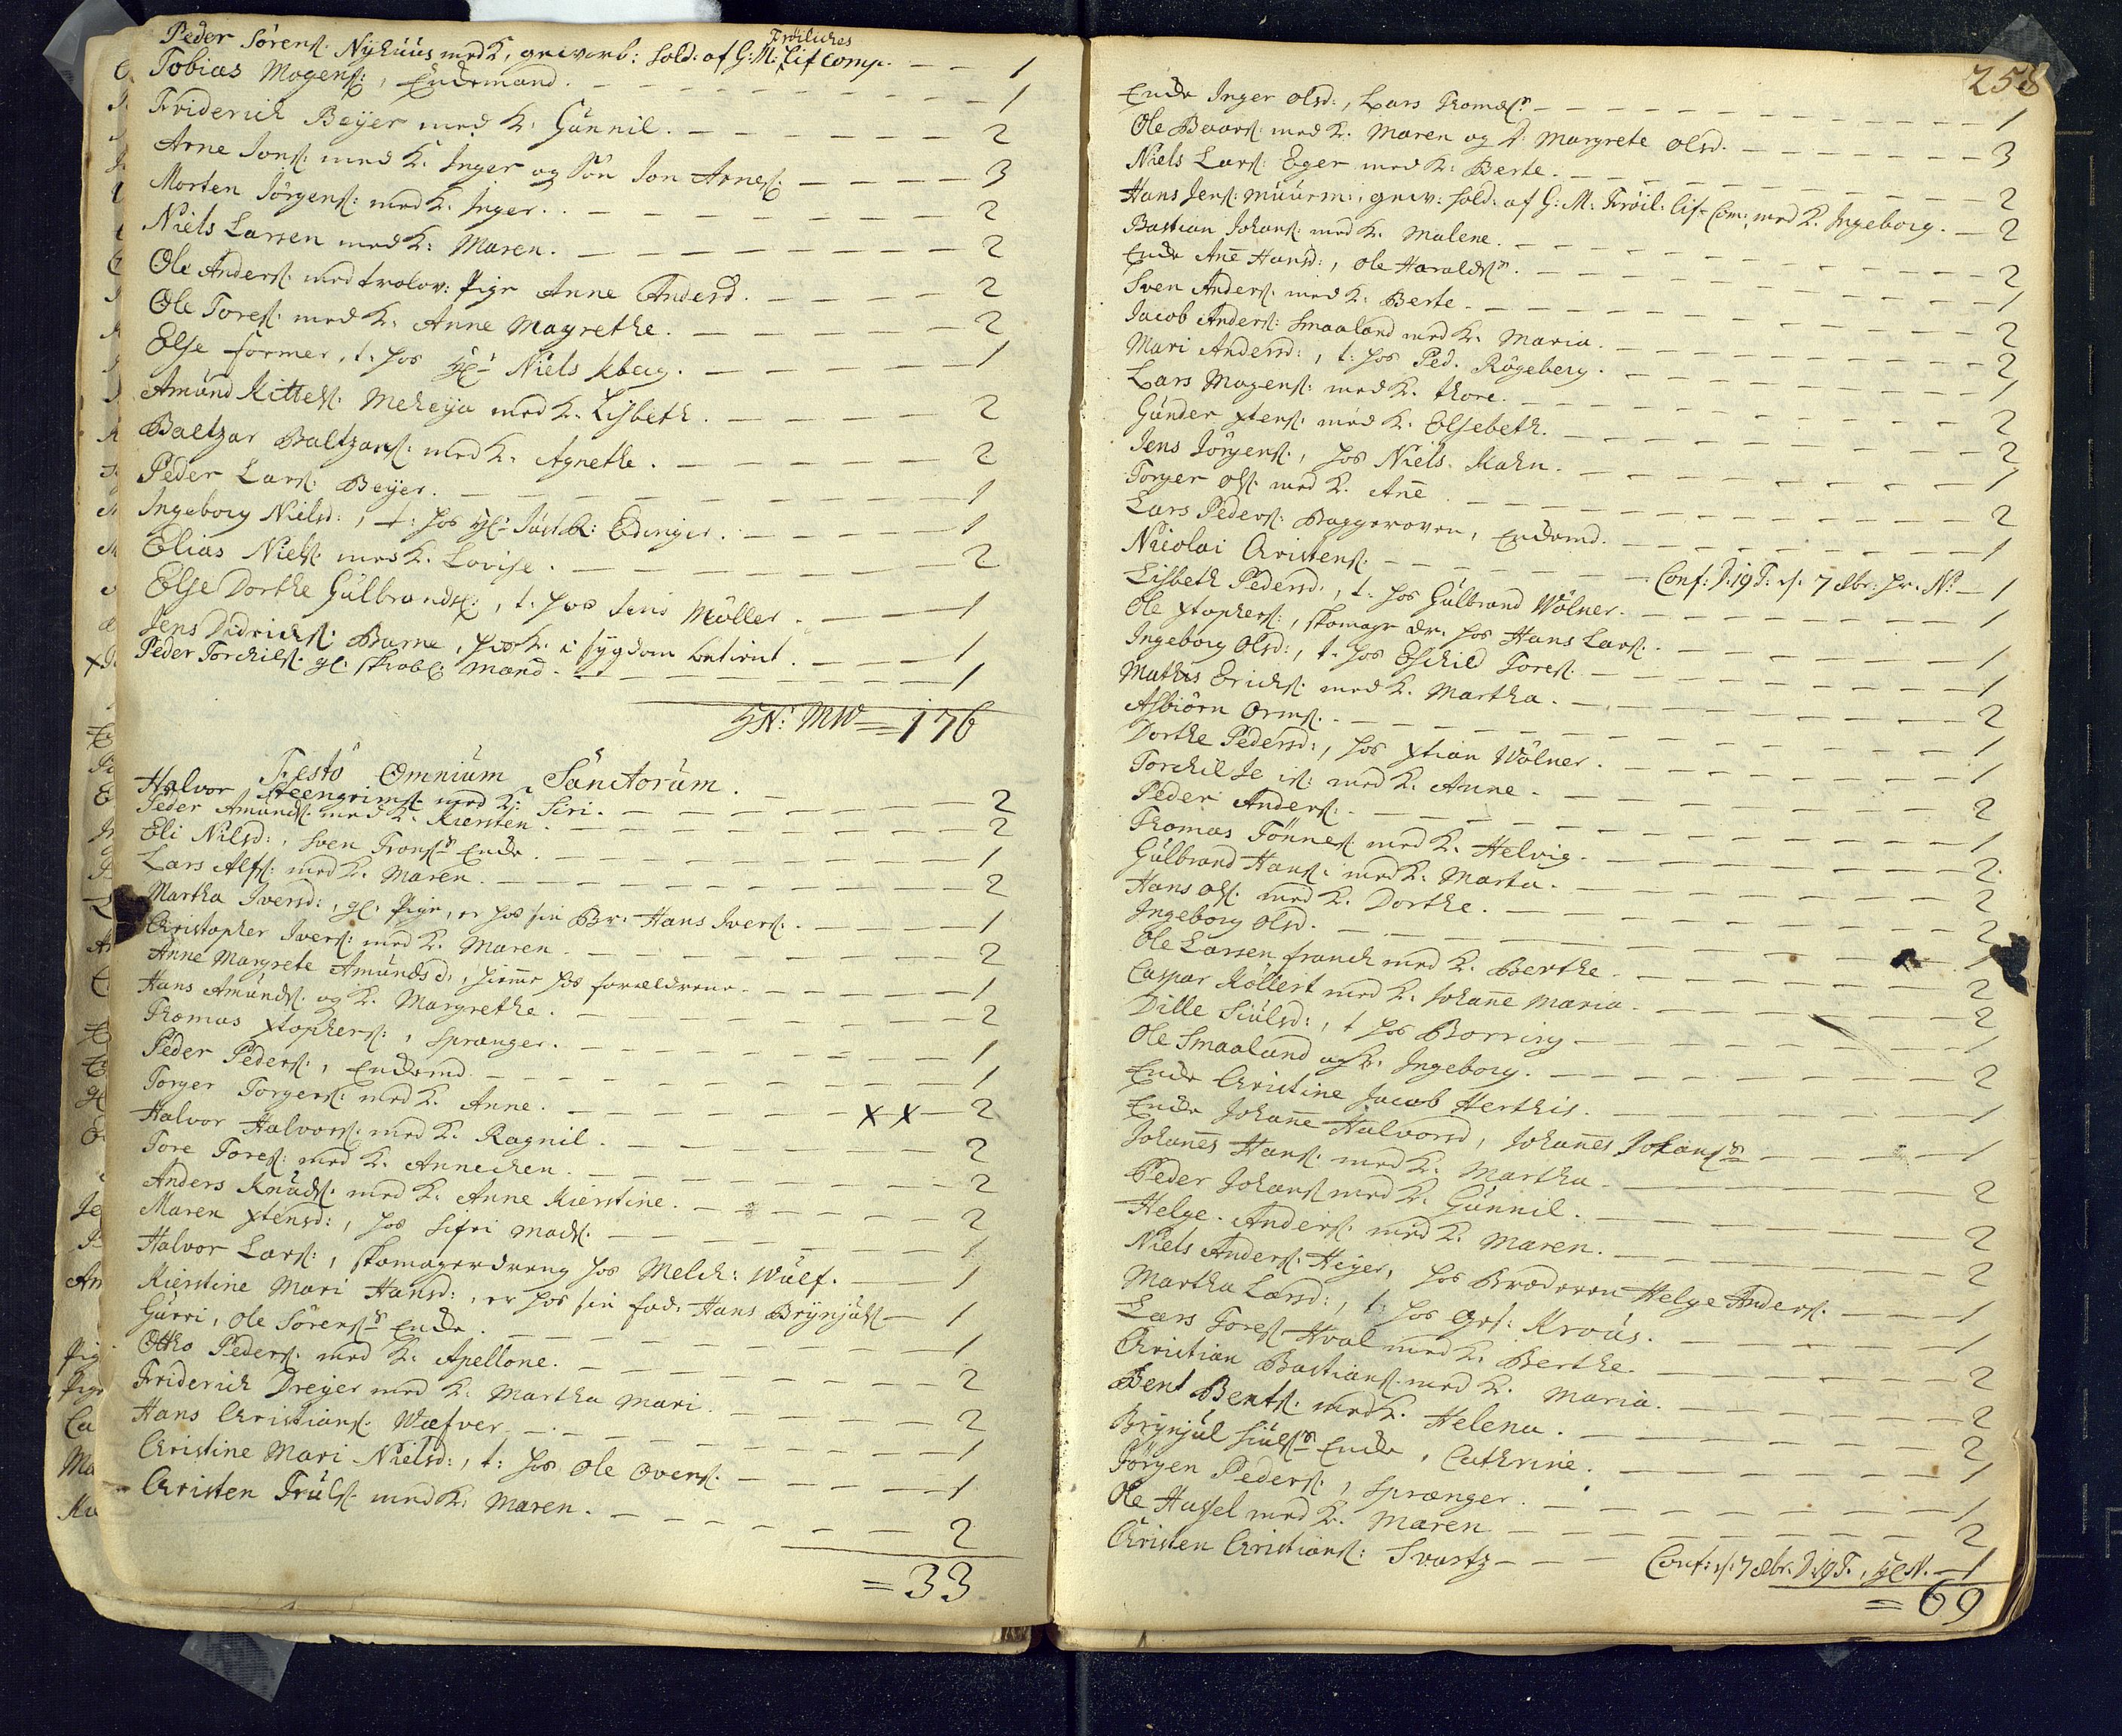 Peder Sörens: Nÿhuus med K, gevorb: Sold: af G: M: Fröliches Lif Comp. — — 1
Tobias Mogens:, Enckemand. — 1
Friderich Beÿer med K: Gunnil. — 2
Arne Jons: med K. Inger og Sön Jon Arnes: — 3
Morten Jörgens: med K. Inger. — 2
Niels Larsen med K: Maren. — 2
Ole Anders: med trolov: Pige Anne Andersd. — 2
Ole Tores: med K. Anne Magrethe. — 2
Else former, t: hos Hr Niels — 1
Amund Kittels: Meheÿa med K. Lisbeth. — 2
Baltzar Baltzars: med K. Agnethe. — 2
Peder Lars: Beÿer. — 1
Ingeborg Nielsd:, t: hos — 1
Elias Niels: med K. Lovise. — 2
Else Dorthe Gulbrands:, t: hos Jens Möller. — 1
Jens Didrichs: Barne, hos K. i sygdom betient. — 1
Peder Torchils: gl: skröbl: Mand. — 1
= 176
Festo Omnium Sanctorum.
Halvor Steengrims: med K: Siri. — 2
Peder Amunds: med K. Kiersten. — 2
Eli Nilsd:, Sven Trons: Encke. — 1
Lars Alfs: med K. Maren. — 2
Martha Iversd:, gl: Pige, er hos sin Br: Hans Ivers: — 1
Christopher Ivers: med K. Maren. — 2
Anne Margrete Amundsd:, hieme hos forældrene. — 1
Hans Amunds: og K. Margrethe. — 2
Thomas Xtophers:, Sprænger. — 1
Peder Peders:, Enckemd. — 1
Torger Torgers: med K. Anne. — x x — 2
Halvor Halvors: med K. Ragnil. — 2
Tore Tores: med K. Annechen. — 2
Anders Knuds: med K. Anne Kierstine. — 2
Maren Xtensd:, hos Sifri Mads: — 1
Halvor Lars:, skomagerdreng hos Melch: Wulf. — 1
Kierstine Mari Hansd:, er hos sin fad: Hans Brÿnjuls: — 1
Gurri, Ole Sörens: Encke. — 1
Otho Peders: med K. Apellone. — 2
Friderich Dreÿer med K: Martha Mari. — 2
Hans Christians: Wæfver. — 1
Christine Mari Nielsd:, t: hos Ole Ovens: — 1
Christen Truls: med K: Maren. — 2
= 33
258
Encke Inger Olsd:, Lars Thomæs: — 1
Ole Baars: med K. Maren og D. Margrete Olsd. — 3
Niels Lars: Eger med K: Berte. — 2
Hans Jens: muurm:, gev: Sold: af G: M: Fröil: Lif-Com: med K. Ingeborg. — 2
Bastian Johans: med K. Malene. — 2
Encke Ane Hansd:, Ole Haralds: — 1
Sven Anders: med K. Berte. — 2
Jacob Anders: Smaaland med K. Maria. — 2
Mari Andersd:, t: hos Ped. Rögeberg. — 1
Lars Mogens: med K. Thore. — 2
Gunder Xtens: med K. Elsebeth. — 2
Jens Jörgens:, hos Niels. Kahn. — 1
Torger Ols: med K. Ane. — 2
Lars Peders: Baggeroven, Enckemd. — 1
Nicolai Christens: — Conf: D: 19 T: d: 7 Sbr: — 1
Lisbeth Pedersd:, t: hos Gulbrand Wölner. — 1
Ole Xtophers:, skomager dr. hos Hans Lars: — 1
Ingeborg Olsd:, t. hos Eschild Tores: — 1
Mathis Erichs: med K. Martha. — 2
Asbiörn Orms: — 1
Dorthe Pedersd:, hos Xtian Wölner. — 1
Torchil med K. Anne. — 2
Peder Anders: — 1
Thomas Tönnes: med K. Helvig. — 2
Gulbrand Hans: med K. Marta. — 2
Hans Ols: med K. Dorthe. — 2
Ingeborg Olsd. — 1
Ole Larsen franch med K. Berthe. — 2
Caspar Köllert med K. Johane Maria. — 2
Dille Siulsd:, t hos Borring — 1
Ole Smaaland og K. Ingeborg. — 2
Encke Christine Jacob Herthis. — 1
Encke Johane Halvorsd, Johanes Johans: — 1
Johanes Hans: med K. Martha. — 2
Peder Johans: med K. Gunnil. — 2
Helge Anders: med K. Maren. — 2
Niels Anders: Heÿer, hos Broderen Helge Anders: — 1
Martha Larsd:, t: hos Kroüs. — 1
Lars Tores: Hval med K. Berthe. — 2
Christian Bastians: med K. Maria. — 2
Bent Bents: med K. Helena. — 2
Brÿnjul Siuls: Encke, Cathrine. — 1
Jörgen Peders:, Sprænger. — 1
Ole Hassel med K. Maren — 2
Christen Christians: Svartz — Conf: d: 7 Sbr. D: 19 T. — 1
= 69